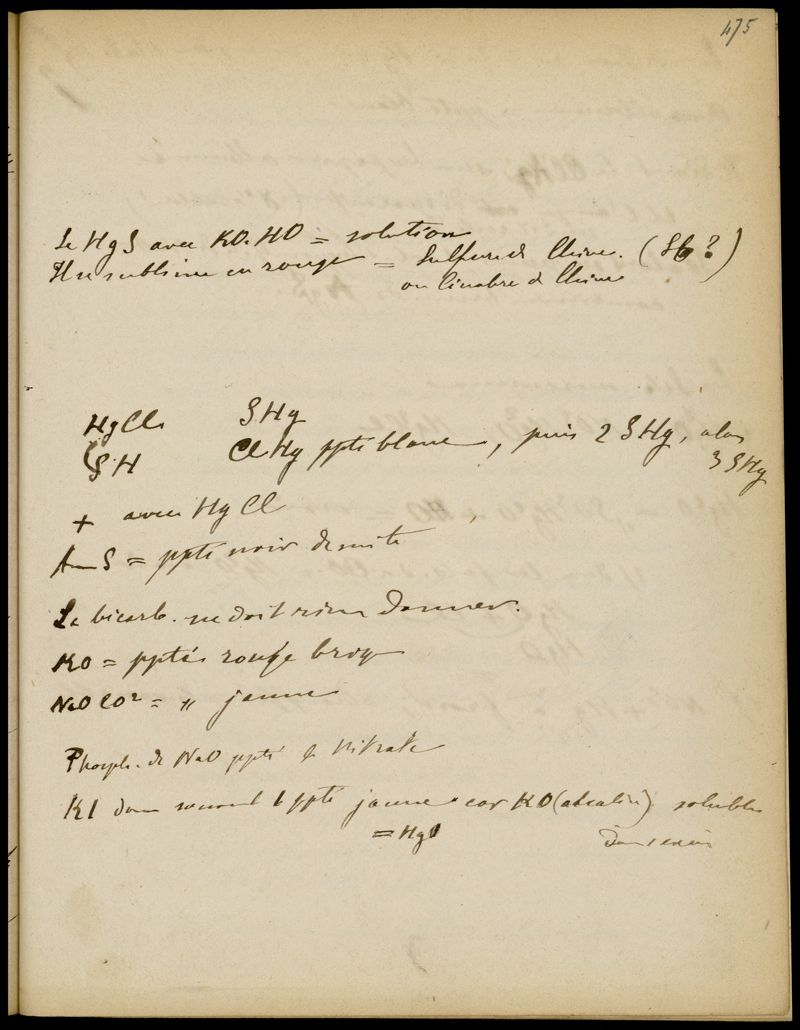 475
Le HgS avec KO.HO = solution
Il se sublime en rouge = Sulfure de Chine. (Sb?)
ou Cinabre de Chine
HgCl SHg
SH ClHg ppté blanc, puis 2 SHg, alors
3 SHg
+ avec HgCl
AmS = ppté noir de suite
Le bicarb. ne doit rien donner.
KO = pptés rouge briq
NaO CO² = " jaune
Phosph. de NaO ppté le Nitrate
KI donne souvent 1 ppté jaune car KO (alcalin) soluble
= HgO dans excès